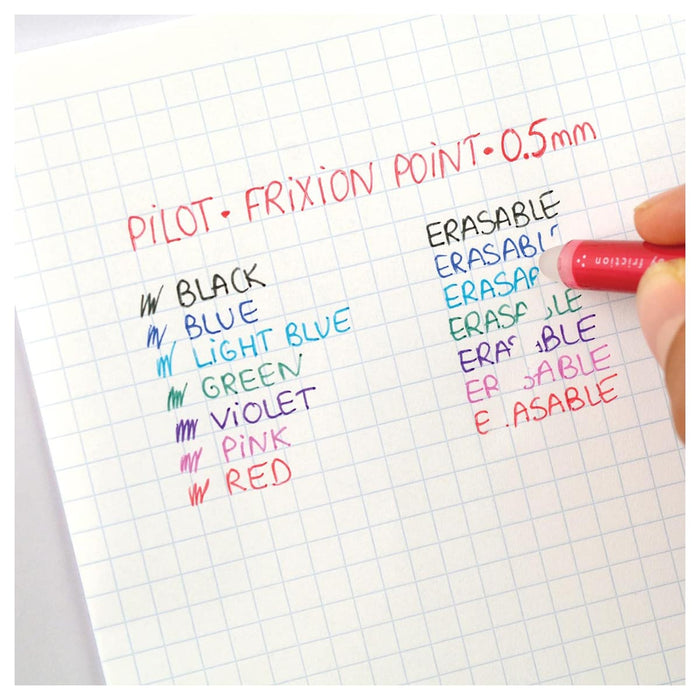 PiLOT • FRiXION POiNT • 0.5mm
BLACK
BLUE
LiGHT BLUE
GREEN
ViOLET
PiNK
RED
ERASABLE
ERASABL
ERASA
ERASA LE
ERA BLE
ER ABLE
E ASABLE
by friction